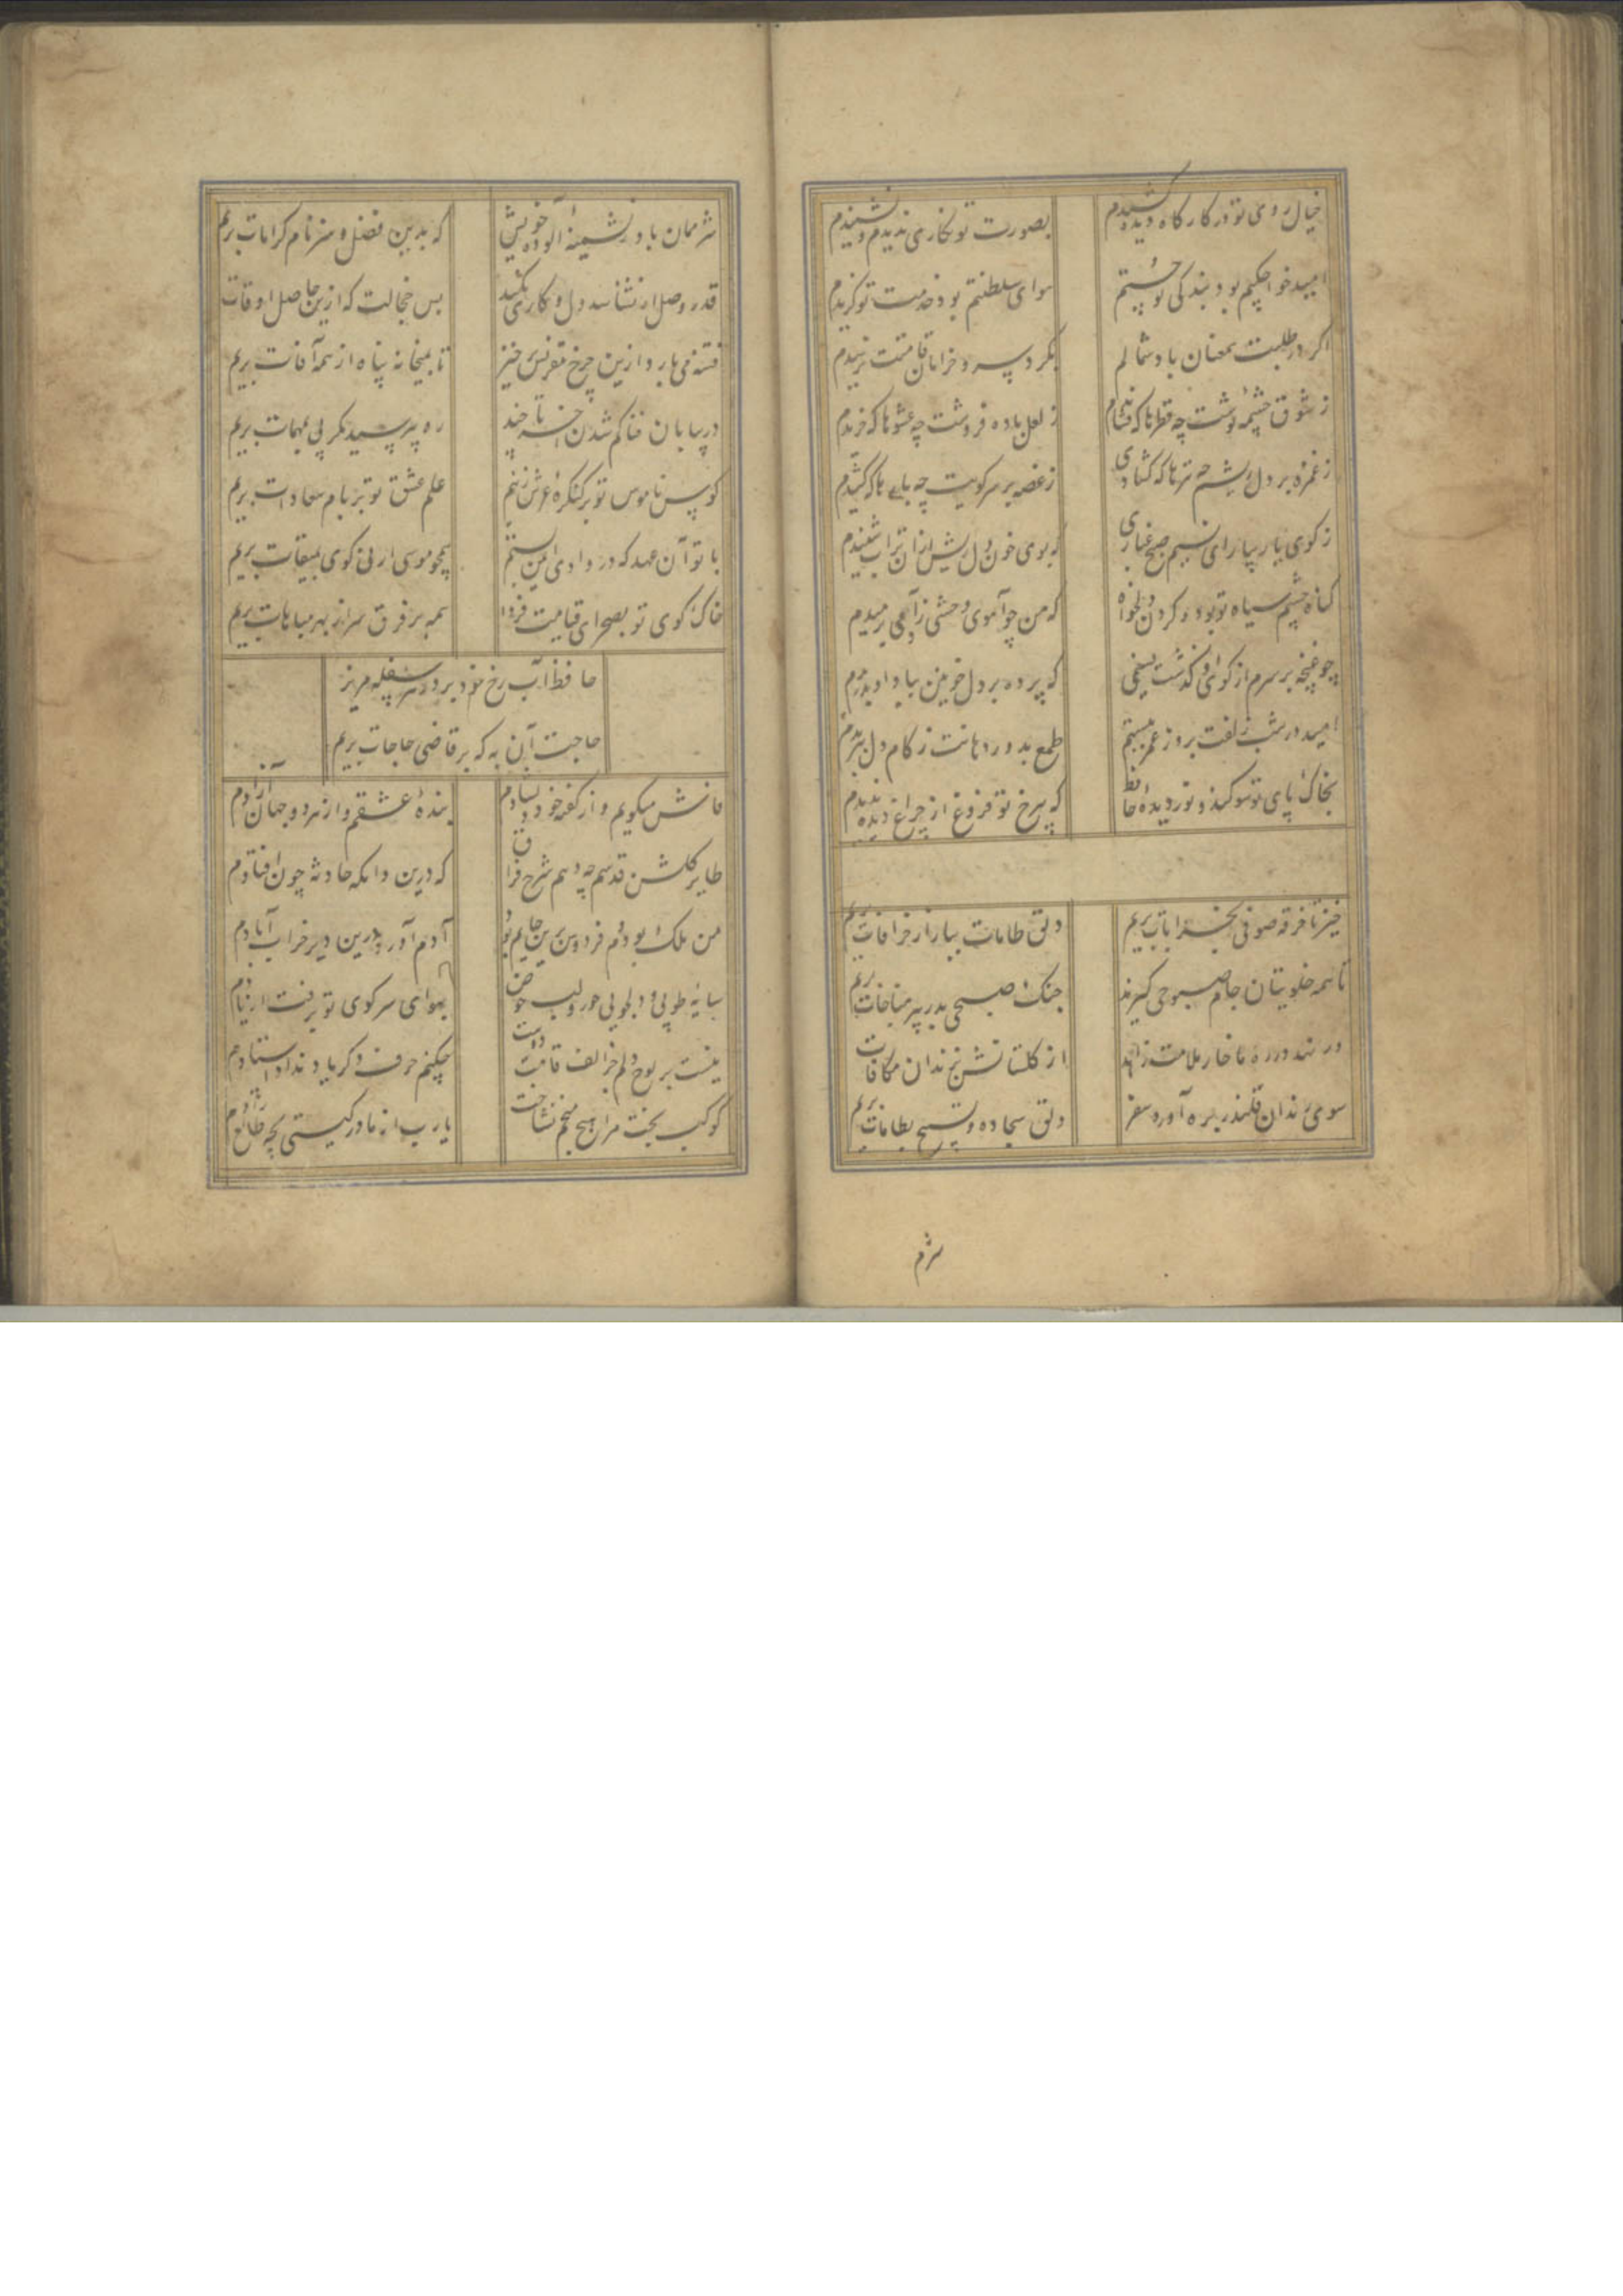 خیال روی تو در کارکاه دیده کشیدم
بصورت تو نکاری ندیدم و نشنیدم
امید خواجکیم بود بندکی تو جستم
هوای سلطنتم بود خدمت تو کزیدم
اکر در طلبت همعنان باد شمالم
بکرد سرو خرامان قامتت نرسیدم
ز شوق چشمه نوشت چه قطرها که فشاندم
ز لعل باده فروشت چه عشوها که خریدم
ز غمزه بر دل ریشم چه تیرها که کشادی
ز غصه بر سر کویت چه بارها که کشیدم
ز کوی یار بیار ای نسیم صبح غباری
که بوی خون دل ریش ازان تراب شنیدم
کناه چشم سیاه تو بود و کردن دلخواه
که من چو آهوی وحشی ز آدمی برمیدم
چو غنچه بر سرم از کوی او کذشت نسیمی
که پرده بر دل خونین ببوی او بدریدم
امید در شب زلفت بروز عمر نبستم
طمع بدور دهانت ز کام دل ببریدم
بخاک پای تو سوکند و نور دیدهٔ حافظ
که بی رخ تو فروغ از چراغ دیده ندیدم
خیز تا خرقه صوفی بخرابات بریم
دلق طامات ببازار خرافات بریم
تا همه خلوتیان جام صبوحی کیرند
چنک صبحی بدر پیر مناجات بریم
ور نهد در ره ما خار ملامت زاهد
از کلستانش بزندان مکافات بریم
سوی رندان قلندر بره آورد سفر
دلق سجاده و تسبیح بطامات بریم
شرم
شرممان باد ز پشمینهٔ آلوده خویش
که بدین فضل و هنر نام کرامات بریم
قدر وصل ار نشناسد دل و کاری نکند
بس خجالت که ازین حاصل اوقات بریم
فتنه می بارد ازین چرخ مقرنس خیز
تا بمیخانه پناه از همه آفات بریم
در بیابان فنا کم شدن آخر تا چند
ره بپرسید مکر پی بمهمات بریم
کوس ناموس تو بر کنکرهٔ عرش زنیم
علم عشق تو بر بام سعادات بریم
با تو آن عهد که در وادی ایمن بستیم
همچو موسی ارنی کوی بمیقات بریم
خاک کوی تو بصحرای قیامت فردا
همه بر فرق سر از بهر مباهات بریم
حافظ آب رخ خود بر در هر سفله مریز
حاجت آن به که بر قاضی حاجات بریم
فاش میکویم و از کفته خود دلشادم
بندهٔ عشقم و از هر دو جهان آزادم
طایر کلشن قدسم چه دهم شرح فراق
که درین دامکه حادثه چون افتادم
من ملک بودم و فردوس برین جایم بود
آدم آورد درین دیر خراب آبادم
سایهٔ طوبی و دلجویی حور و لب حوض
بهوای سر کوی تو برفت از یادم
نیست بر لوح دلم جز الف قامت دوست
چکنم حرف دکر یاد نداد استادم
کوکب بخت مرا هیچ منجم نشناخت
یا رب از مادر کیتی بچه طالع زادم